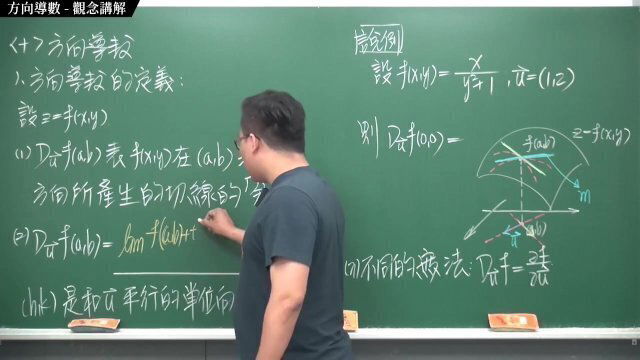 方向導數 - 觀念講解
<十>方向導數
1. 方向導數的定義:
設 z=f(x,y)
(1) D_u⃗ f(a,b) 表 f(x,y) 在 (a,b)
方向所產生的切線的「
(2) D_u⃗ f(a,b) = lim f((a,b)+t
(h,k) 是和 u⃗ 平行的單位向
說例
設 f(x,y) = x/(y²+1), u⃗=(1,2)
則 D_u⃗ f(0,0) =
z=f(x,y)
f(a,b)
m
u⃗
b)
不同的無法: D_u⃗ f = ∂f/∂u⃗